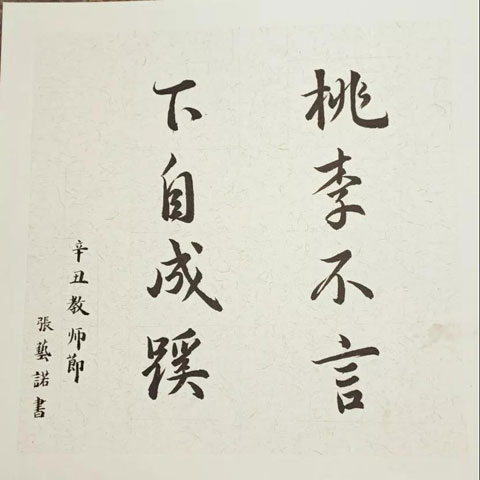 桃李不言
下自成蹊
辛丑教师節
張藝諾書